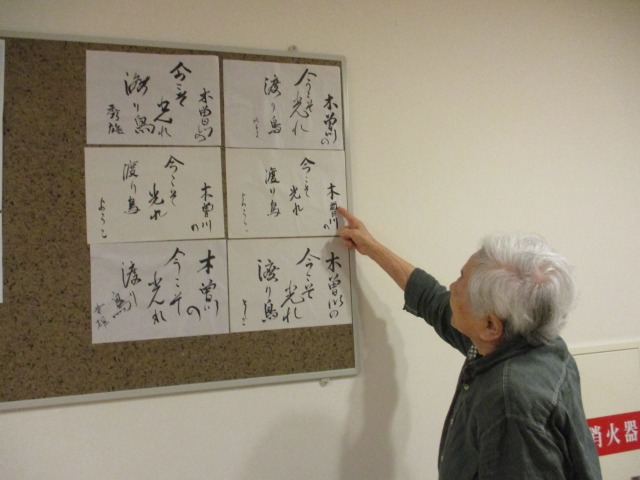 木曽川の
今こそ
光れ
渡り鳥
木曽川の
今こそ
光れ
渡り鳥
木曽川の
今こそ
光れ
渡り鳥
ようこ
木曽川の
今こそ
光れ
渡り鳥
ようこ
木曽川の
今こそ
光れ
渡り鳥
木曽川の
今こそ
光れ
渡り鳥
消火器